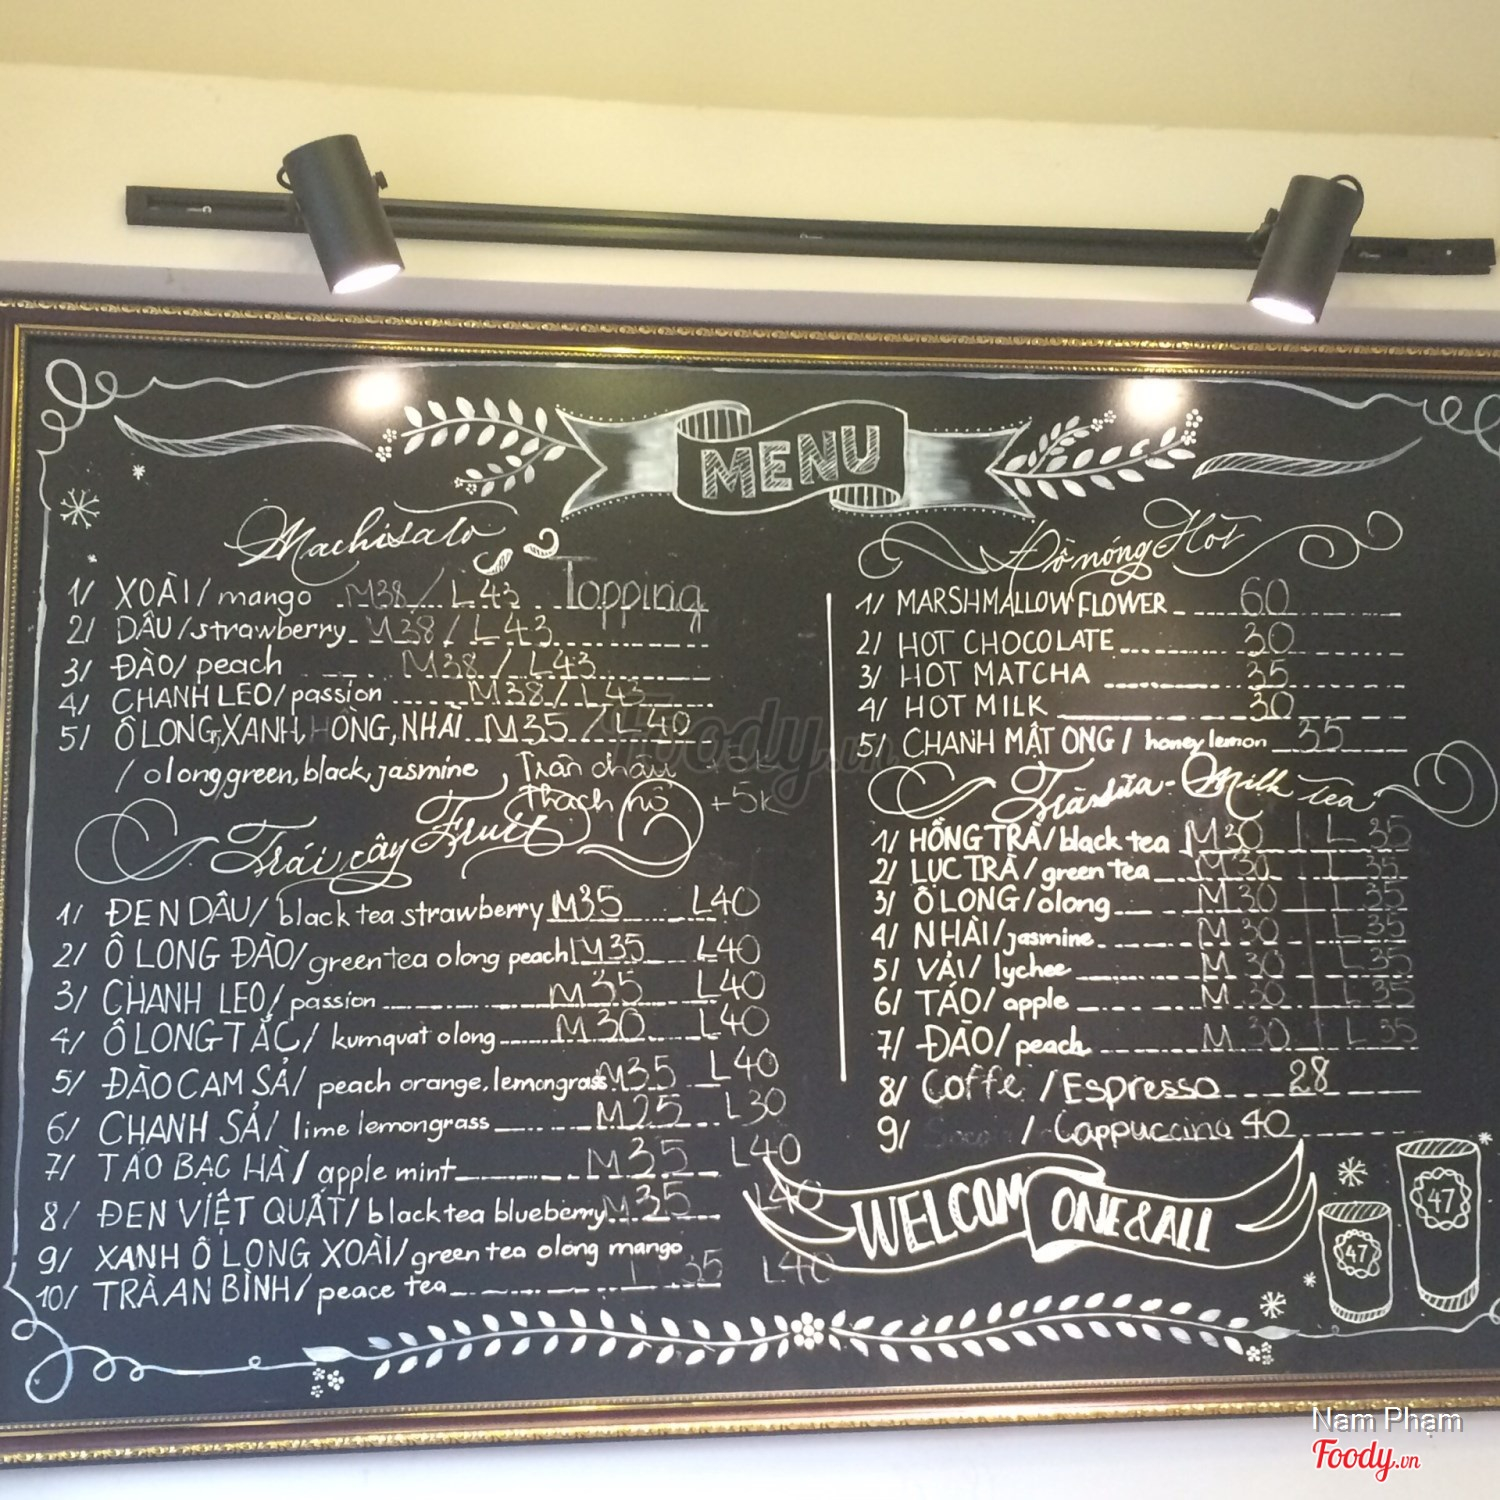 MENU
Machisato
1/ XOÀI/ mango M38/ L43 Topping
2/ DÂU/strawberry M38/ L43
3/ ĐÀO/ peach M38/ L43
4/ CHANH LEO/ passion M38/ L43
5/ Ô LONG, XANH, HỒNG, NHÀI M35 / L40
/ olong, green, black, jasmine
Trân châu
Thạch nổ +5k
Trái cây Fruit
1/ ĐEN DÂU/ black tea strawberry M35 L40
2/ Ô LONG ĐÀO/ green tea olong peach M35 L40
3/ CHANH LEO/ passion M35 L40
4/ Ô LONG TẮC/ kumquat olong M30 L40
5/ ĐÀO CAM SẢ/ peach orange, lemongrass M35 L40
6/ CHANH SẢ/ lime lemongrass M25 L30
7/ TÁO BẠC HÀ/ apple mint M35 L40
8/ ĐEN VIỆT QUẤT/ black tea blueberry M35 L40
9/ XANH Ô LONG XOÀI/ green tea olong mango 35 L40
10/ TRÀ AN BÌNH/ peace tea
Đồ nóng Hot
1/ MARSHMALLOW FLOWER 60
2/ HOT CHOCOLATE 30
3/ HOT MATCHA 35
4/ HOT MILK 30
5/ CHANH MẬT ONG / honey lemon 35
Trà sữa - Milk Tea
1/ HỒNG TRÀ/ black tea M30 L 35
2/ LỤC TRÀ/ green tea M30 L 35
3/ Ô LONG/ olong M 30 L 35
4/ NHÀI/ jasmine M 30 L 35
5/ VẢI/ lychee M 30 L 35
6/ TÁO/ apple M 30 L 35
7/ ĐÀO/ peach M 30 L 35
8/ Coffe / Espresso 28
9/ / Cappuccino 40
WELCOM ONE & ALL
47
47
Foody.vn
Nam Phạm
Foody.vn